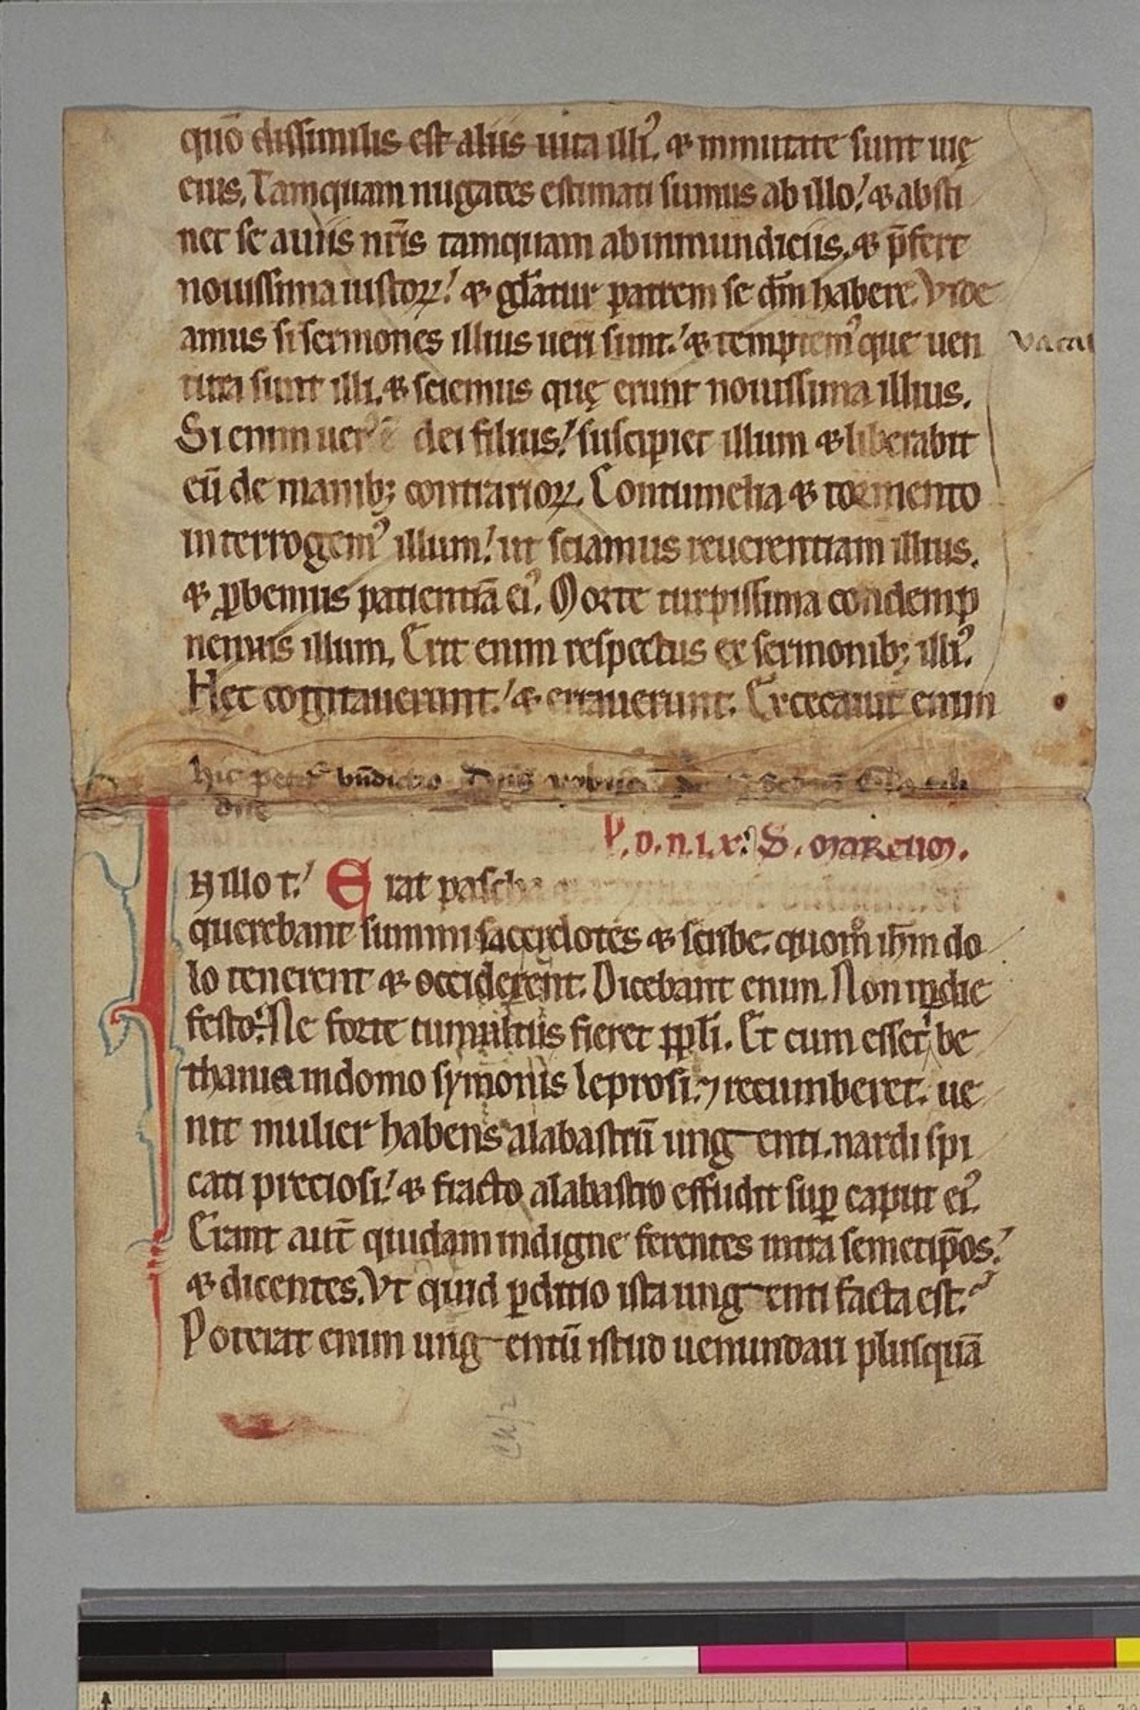 quō dissimilis est aliis uita illiꝰ. & inmutate sunt uię
eius. Tamquam nugaces estimati sumus ab illo! & absti
net se a uiis nr̄is tamquam ab inmundiciis. & p̄fert
nouissima iustoꝝ! & gl̄atur patrem se dm̄ habere. Vide
amus si sermones illius ueri sunt! & temptemꝰ que uen
tura sunt illi. & sciemus quę erunt nouissima illius.
Si enim uerꝰ ē dei filius! suscipiet illum & liberabit
eū de manibꝫ contrarioꝝ. Contumelia & tormento
interrogemꝰ illum! ut sciamus reuerentiam illius.
& ꝓbemus patientiā eiꝰ. Morte turpissima condemp
nemus illum. Erit enim respectus ex sermonibꝫ illiꝰ.
Hęc cogitauerunt! & errauerunt. Excecauit enim
vacat
P. D. N. I. X. S. MARCUM.
IN illo t.! Erat pascha
querebant summi sacerdotes & scribe. quom̊ ih̄m do
lo tenerent & occiderent. Dicebant enim. Non in die
festo. Ne forte tumultus fieret ppl̄i. Et cum esset be
thanie in domo symonis leprosi. ⁊ recumberet. ue
nit mulier habens alabastrū ung enti. nardi spi
cati preciosi! & fracto alabastro effudit suꝑ caput eiꝰ.
Erant aut̄ quidam indigne ferentes intra semetip̄os!
& dicentes. Vt quid ꝑditio ista ung enti facta est.
Poterat enim ung entū istud uenundari plusquā